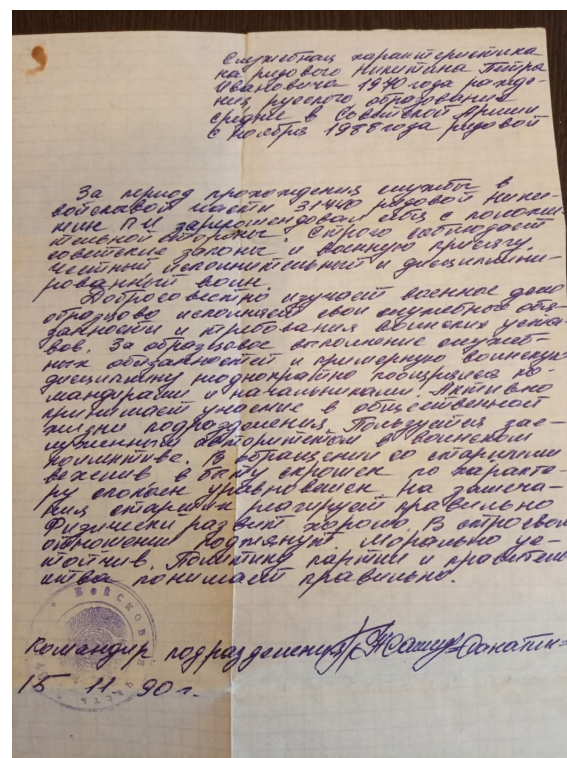 Служебная характеристика
на рядового Никитина Петра
Ивановича 1970 года рожде-
ния русского образование
среднее в Советской Армии
с ноября 1988 года рядовой
За период прохождения службы в
войсковой части 31440 рядовой Ники-
тин П.И зарекомендовал себя с положи-
тельной стороны. Строго соблюдает
советские законы и военную присягу.
Честный исполнительный и дисциплини-
рованный воин.
Добросовестно изучает военное дело
образцово исполняет свои служебные обя-
занности и требования воинских уста-
вов. За образцовое выполнение служеб-
ных обязанностей и примерную воинскую
дисциплину неоднократно поощрялся ко-
мандирами и начальниками. Активно
принимает участие в общественной
жизни подразделения. Пользуется зас-
луженным авторитетом в воинском
коллективе. В обращении со старшими
вежлив в быту скромен по характе-
ру спокоен уравновешен на замеча-
ния старших реагирует правильно
Физически развит хорошо. В строевом
отношении подтянут. Морально ус-
тойчив. Политику партии и правитель
ства понимает правильно.
Войсковая часть
Командир подразделения
15 11 90 г.